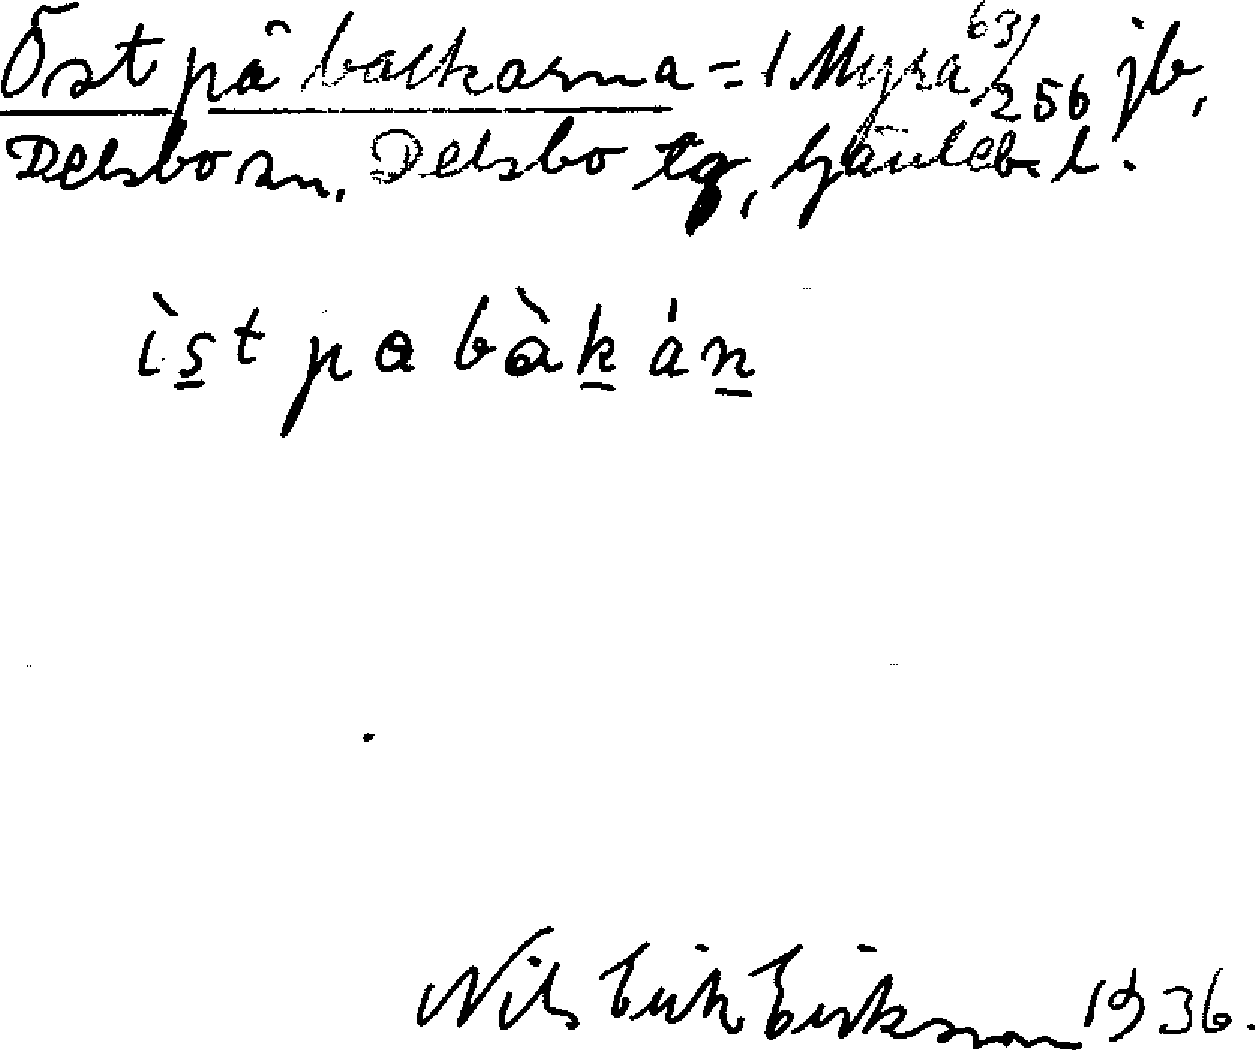 Öst på backarna = 1 Myra 63/256 jb,
Delsbo sn. Delsbo tg, Gävleb. l.
ìs̲t pa bàk̲án̲
Nils Erik Eriksson 1936.